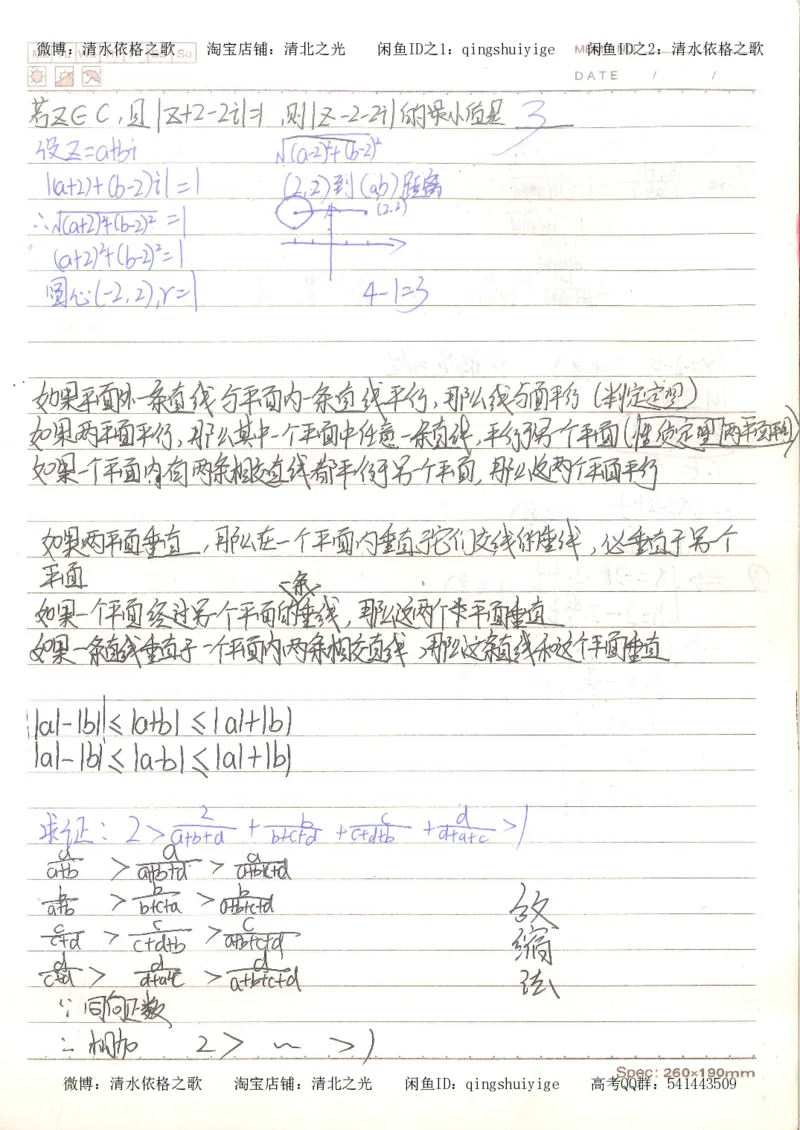 微博：清水依格之歌 淘宝店铺：清北之光 闲鱼ID之1：qingshuiyige 闲鱼ID之2：清水依格之歌
DATE / /
若Z∈C，且|Z+2-2i|=1，则|Z-2-2i|的最小值是 3
设Z=a+bi √(a-2)²+(b-2)²
|(a+2)+(b-2)i|=1 (2,2)到(a,b)距离
∴√(a+2)²+(b-2)²=1 (2,2)
(a+2)²+(b-2)²=1
圆心(-2,2),r=1 4-1=3
如果平面外一条直线与平面内一条直线平行，那么线与面平行（判定定理）
如果两平面平行，那么其中一个平面中任意一条直线，平行于另一个平面（性质定理 两平面平行）
如果一个平面内有两条相交直线都平行于另一个平面，那么这两个平面平行
如果两平面垂直，那么在一个平面内垂直于它们交线的垂线，必垂直于另个
平面
一条
如果一个平面经过另一个平面的垂线，那么这两个平面垂直
如果一条直线垂直于一个平面内两条相交直线，那么这条直线和这个平面垂直
||a|-|b||≤|a+b|≤|a|+|b|
|a|-|b|≤|a-b|≤|a|+|b|
求证：2>2/(a+b+d)+b/(b+c+a)+c/(c+d+b)+d/(d+a+c)>1
a/(a+b) > a/(a+b+d) > a/(a+b+c+d)
b/(a+b) > b/(b+c+a) > b/(a+b+c+d) 放
c/(c+d) > c/(c+d+b) > c/(a+b+c+d) 缩
d/(c+d) > d/(d+a+c) > d/(a+b+c+d) 法
∵同向正数
∴相加 2>~>1
Spec: 260×190mm
微博：清水依格之歌 淘宝店铺：清北之光 闲鱼ID：qingshuiyige 高考QQ群：541443509